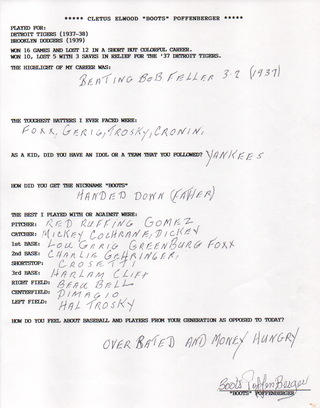 ***** CLETUS ELWOOD "BOOTS" POFFENBERGER *****
PLAYED FOR:
DETROIT TIGERS (1937-38)
BROOKLYN DODGERS (1939)
WON 16 GAMES AND LOST 12 IN A SHORT BUT COLORFUL CAREER.
WON 10, LOST 5 WITH 3 SAVES IN RELIEF FOR THE '37 DETROIT TIGERS.
THE HIGHLIGHT OF MY CAREER WAS:
BEATING BOB FELLER 3-2 (1937)
THE TOUGHEST BATTERS I EVER FACED WERE:
FOXX, GERIG, TROSKY, CRONIN,
AS A KID, DID YOU HAVE AN IDOL OR A TEAM THAT YOU FOLLOWED? YANKEES
HOW DID YOU GET THE NICKNAME "BOOTS"
HANDED DOWN (FATHER)
THE BEST I PLAYED WITH OR AGAINST WERE:
PITCHER: RED RUFFING GOMEZ
CATCHER: MICKEY COCHRANE, DICKEY
1st BASE: LOU GARIG GREENBURG FOXX
2nd BASE: CHARLIE GEHRINGER,
SHORTSTOP: CROSETTI
3rd BASE: HARLAM CLIFF
RIGHT FIELD: BEAU BELL
CENTERFIELD: DIMAGIO
LEFT FIELD: HAL TROSKY
HOW DO YOU FEEL ABOUT BASEBALL AND PLAYERS FROM YOUR GENERATION AS OPPOSED TO TODAY?
OVER RATED AND MONEY HUNGRY
Boots Poffenberger
"BOOTS" POFFENBERGER